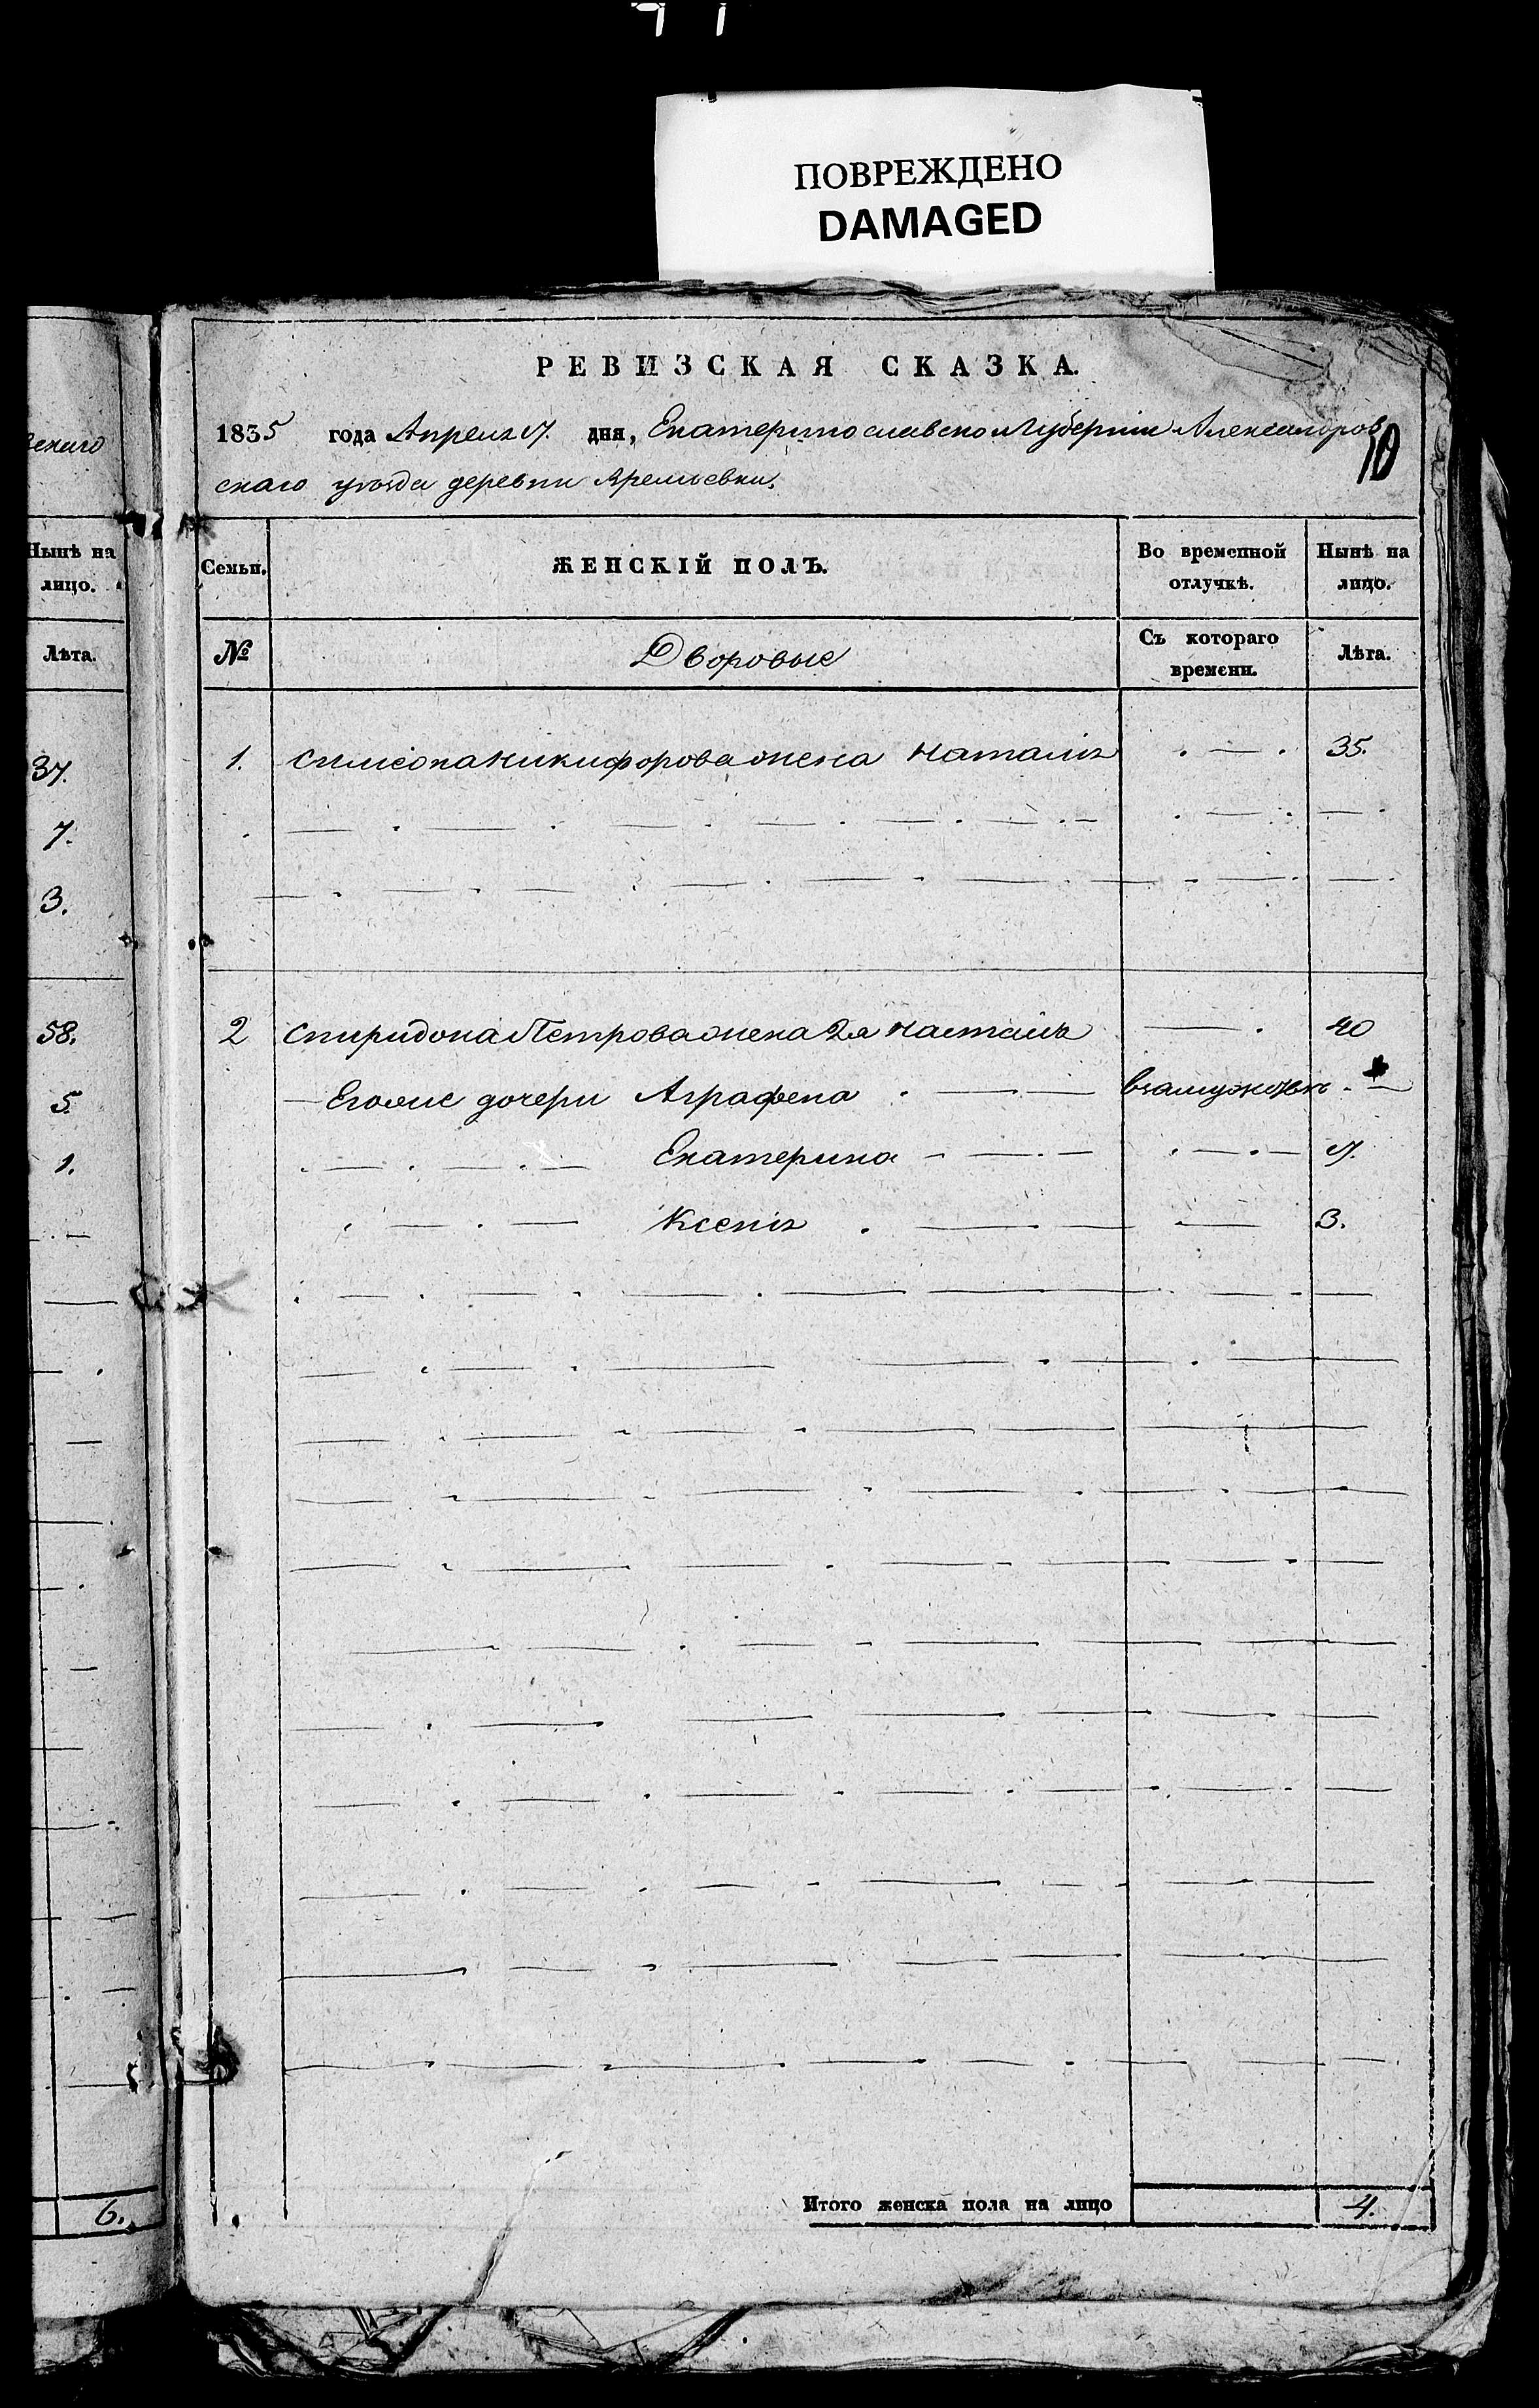 ПОВРЕЖДЕНО
DAMAGED
РЕВИЗСКАЯ СКАЗКА.
1835 года Апреля 17. дня, Екатеринославской Губернии Александров
10
скаго уѣзда деревни
Нынѣ на
лицо.
Лѣта.
37.
7.
3.
58.
5.
1.
6.
Семьи. ЖЕНСКІЙ ПОЛЪ. Во временной отлучкѣ. Нынѣ на лицо.
№ Дворовые Съ котораго времени. Лѣта.
1. Симеона Никифорова жена Наталія 35.
2 Спиридона Петрова жена 2я Настасья 40
Егоже дочери Аграфена взамужствѣ
Екатерина 7.
Ксенія 3.
Итого женска пола на лицо 4.